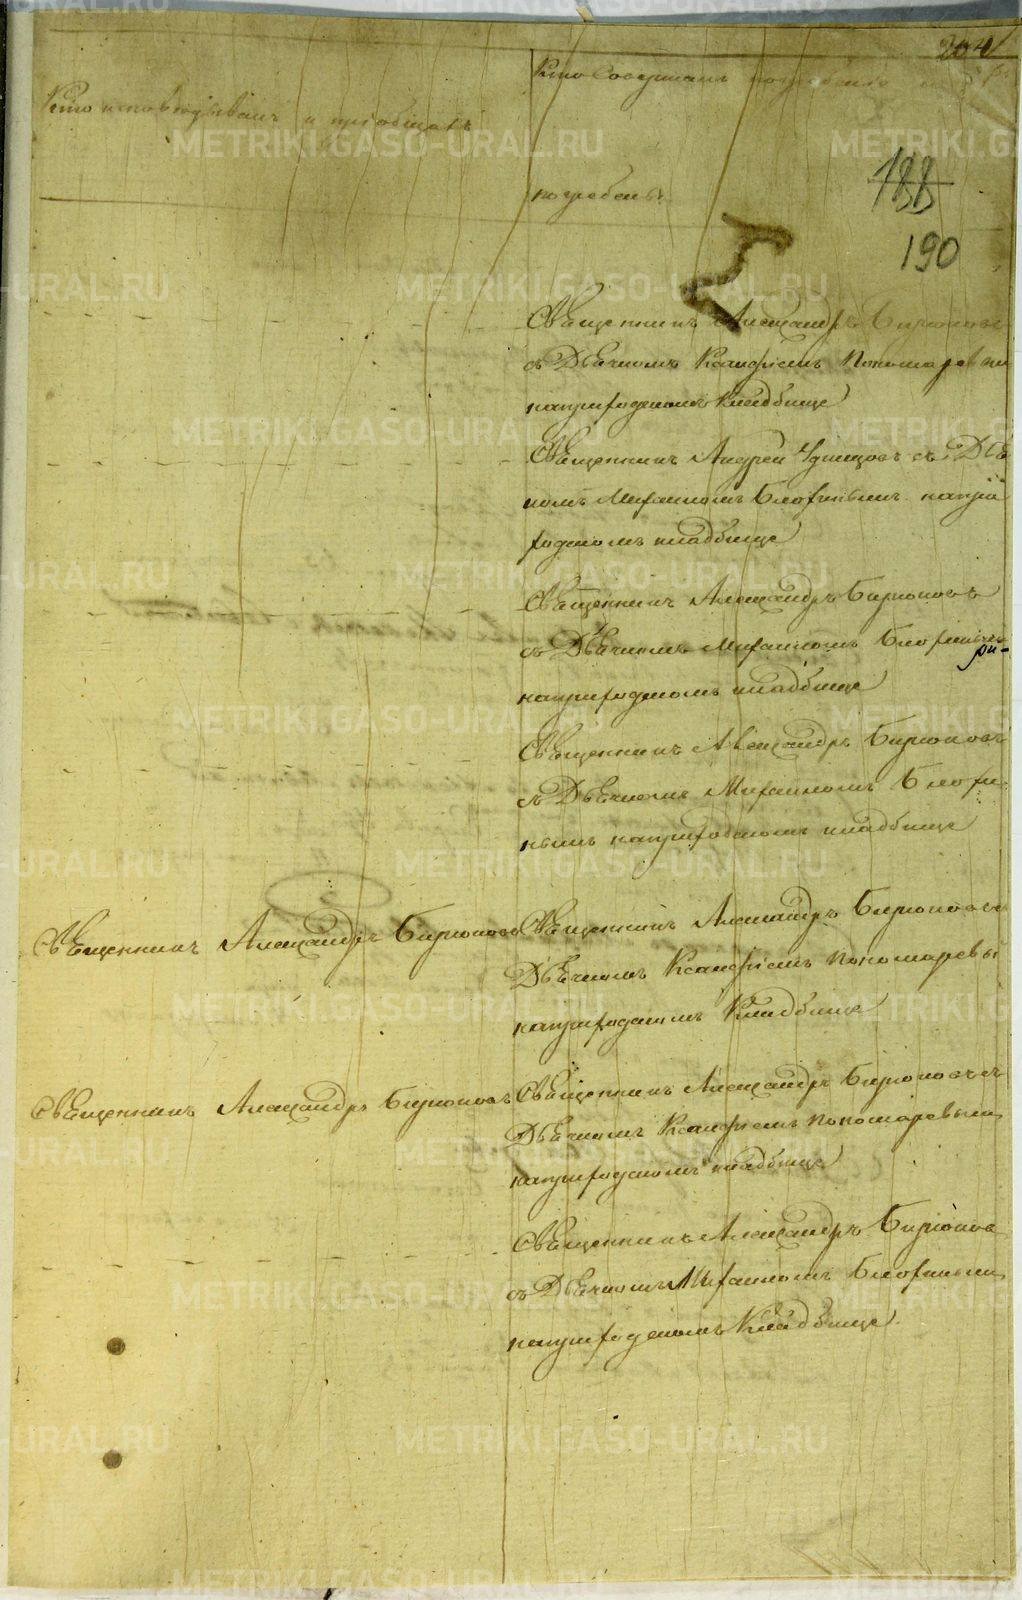 204
Кто исповѣдывалъ и пріобщалъ
Кто совершалъ погребеніе и гдѣ
погребены.
188
190
Священникъ Александръ Бирюковъ
съ Дьячкомъ Ксанфіемъ Пономаревым
на приходскомъ кладбище
Священникъ Андрей съ Дья
комъ Михаиломъ на при
ходскомъ кладбище
Священникъ Александръ Бирюковъ
съ Дьячкомъ Михаиломъ
на приходскомъ кладбище
Священникъ Александръ Бирюковъ
съ Дьячкомъ Михаиломъ
на приходскомъ кладбище
Священникъ Александръ Бирюковъ
Священникъ Александръ Бирюковъ съ
Дьячкомъ Ксанфіемъ Пономаревы
на приходскомъ Кладбище
Священникъ Александръ Бирюковъ
Священникъ Александръ Бирюковъ съ
Дьячкомъ Ксанфіемъ Пономаревым
на приходскомъ кладбище
Священникъ Александръ Бирюков
съ Дьячкомъ Михаиломъ
на приходскомъ Кладбище
METRIKI.GASO-URAL.RU